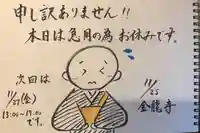 申し訳ありません!!
本日は忌月の為お休みです。
次回は
11/27(金)
13:00~17:00
です。
11/25
金龍寺